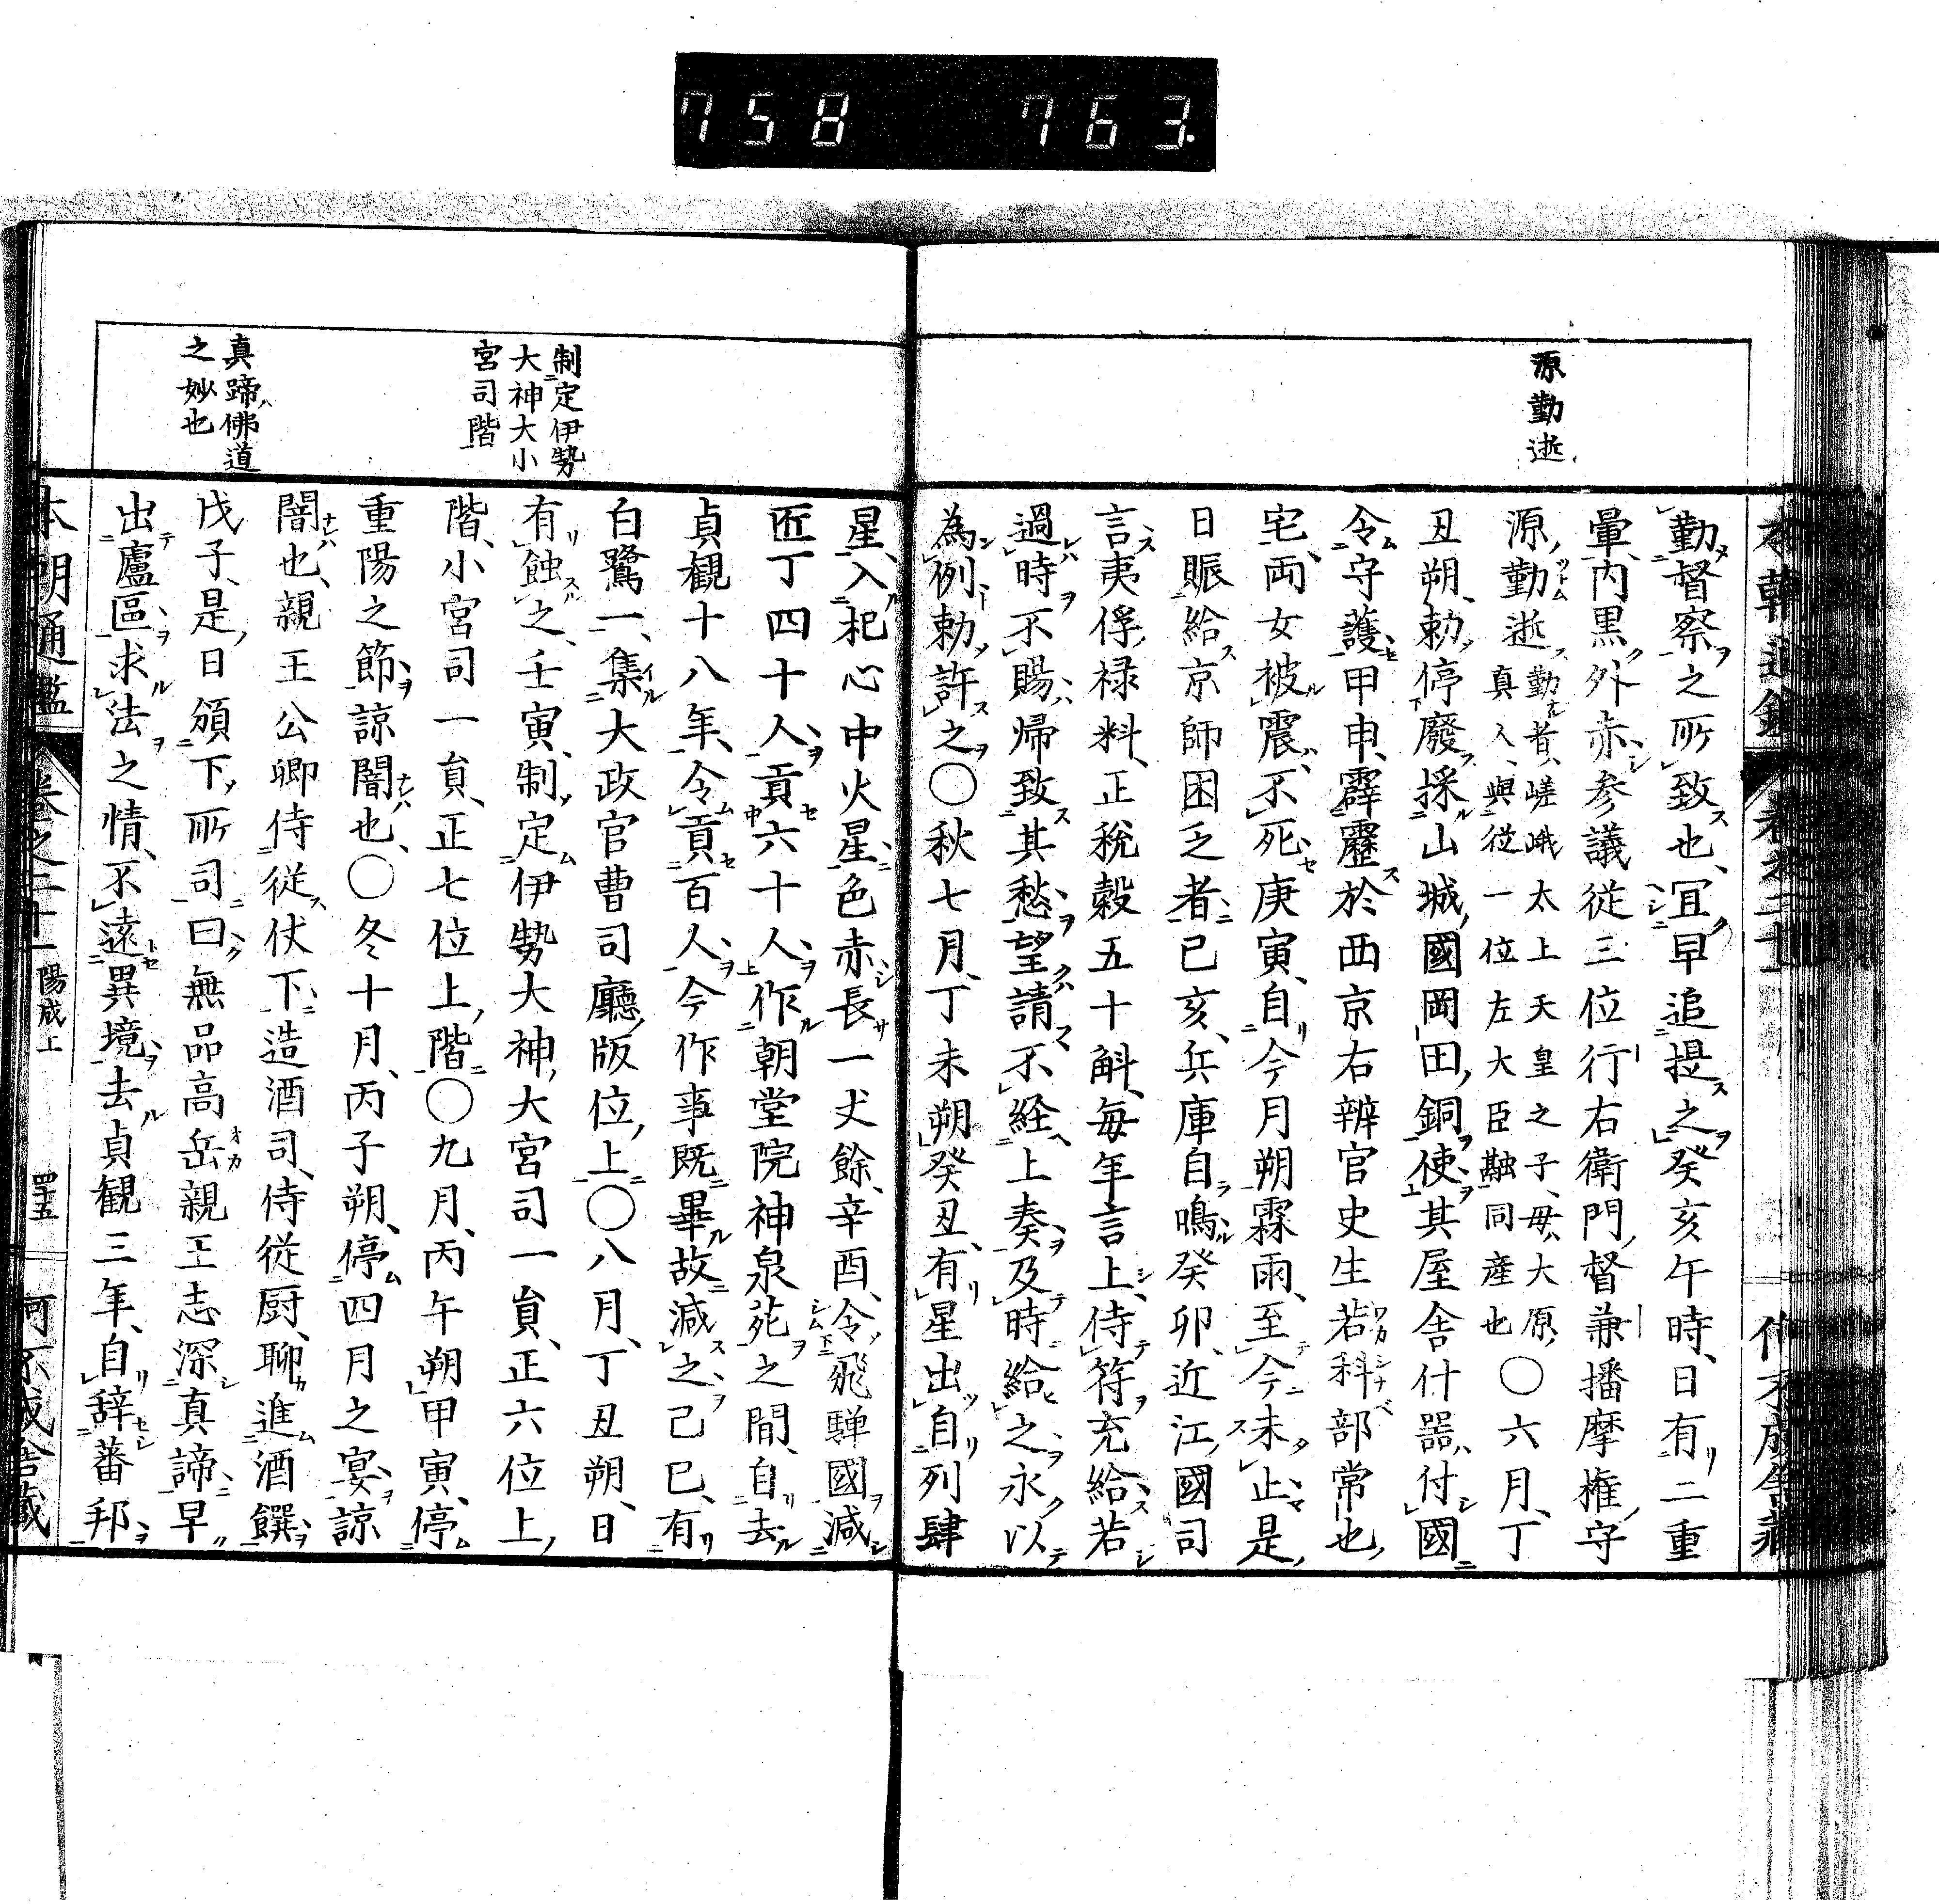 758 763.
源勤逝
勤督察之所致也、宜早追提之癸亥午時、日有二重
暈、内黒外赤参議従三位行右衛門督兼播摩権守
源勤逝勤者、嵯峨太上天皇之子、母大原、
真人、與従一位左大臣融同産也〇六月、丁
丑朔、勅停廢採山城國岡田銅使其屋舎什器付國
令守護、甲申、霹靂於西京右辨官史生若科部常也、
宅、両女被震、不死、庚寅、自今月朔霖雨、至今未止是
日賑給京師困乏者、己亥、兵庫自鳴癸卯、近江國司
言夷俘禄料、正税穀五十斛、毎年言上、侍符充給、若
過時不賜帰致其愁望請不経上奏及時給之永以
為例勅許之〇秋七月、丁未朔癸丑、有星出自列肆
星、入杞心中火星、色赤長一丈餘、辛酉、令飛騨國減
匠丁四十人貢六十人作朝堂院神泉苑之間、自去
貞観十八年、令貢百人、今作事既畢故減之己巳、有
白鷺一、集大政官曹司廳版位上〇八月、丁丑朔、日
有蝕之、壬寅、制定伊勢大神大宮司一員、正六位上、
階、小宮司一員、正七位上階〇九月、丙午朔甲寅、停
重陽之節諒闇也、〇冬十月、丙子朔、停四月之宴諒
闇也、親王公卿侍従仗下、造酒司、侍従厨、聊進酒饌
戊子、是日頒下所司曰、無品高岳親王志深真諦早
出廬區求法之情、不遠異境去貞観三年、自辞蕃邦
制定伊勢
大神大小
宮司階
真蹄佛道
之妙也
本朝通鑑 巻之二十一 陽成上 四十五